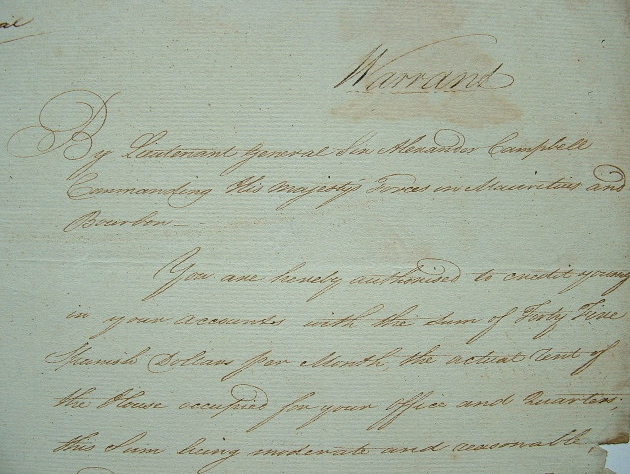 Warrant
By Lieutenant General Sir Alexander Campbell
Commanding His Majesty's Forces in Mauritius and
Bourbon —
You are hereby authorised to credit yours
in your accounts with the sum of Forty Five
Spanish Dollars per Month, the actual Rent of
the House occupied for your Office and Quarters;
this Sum being moderate and reasonable